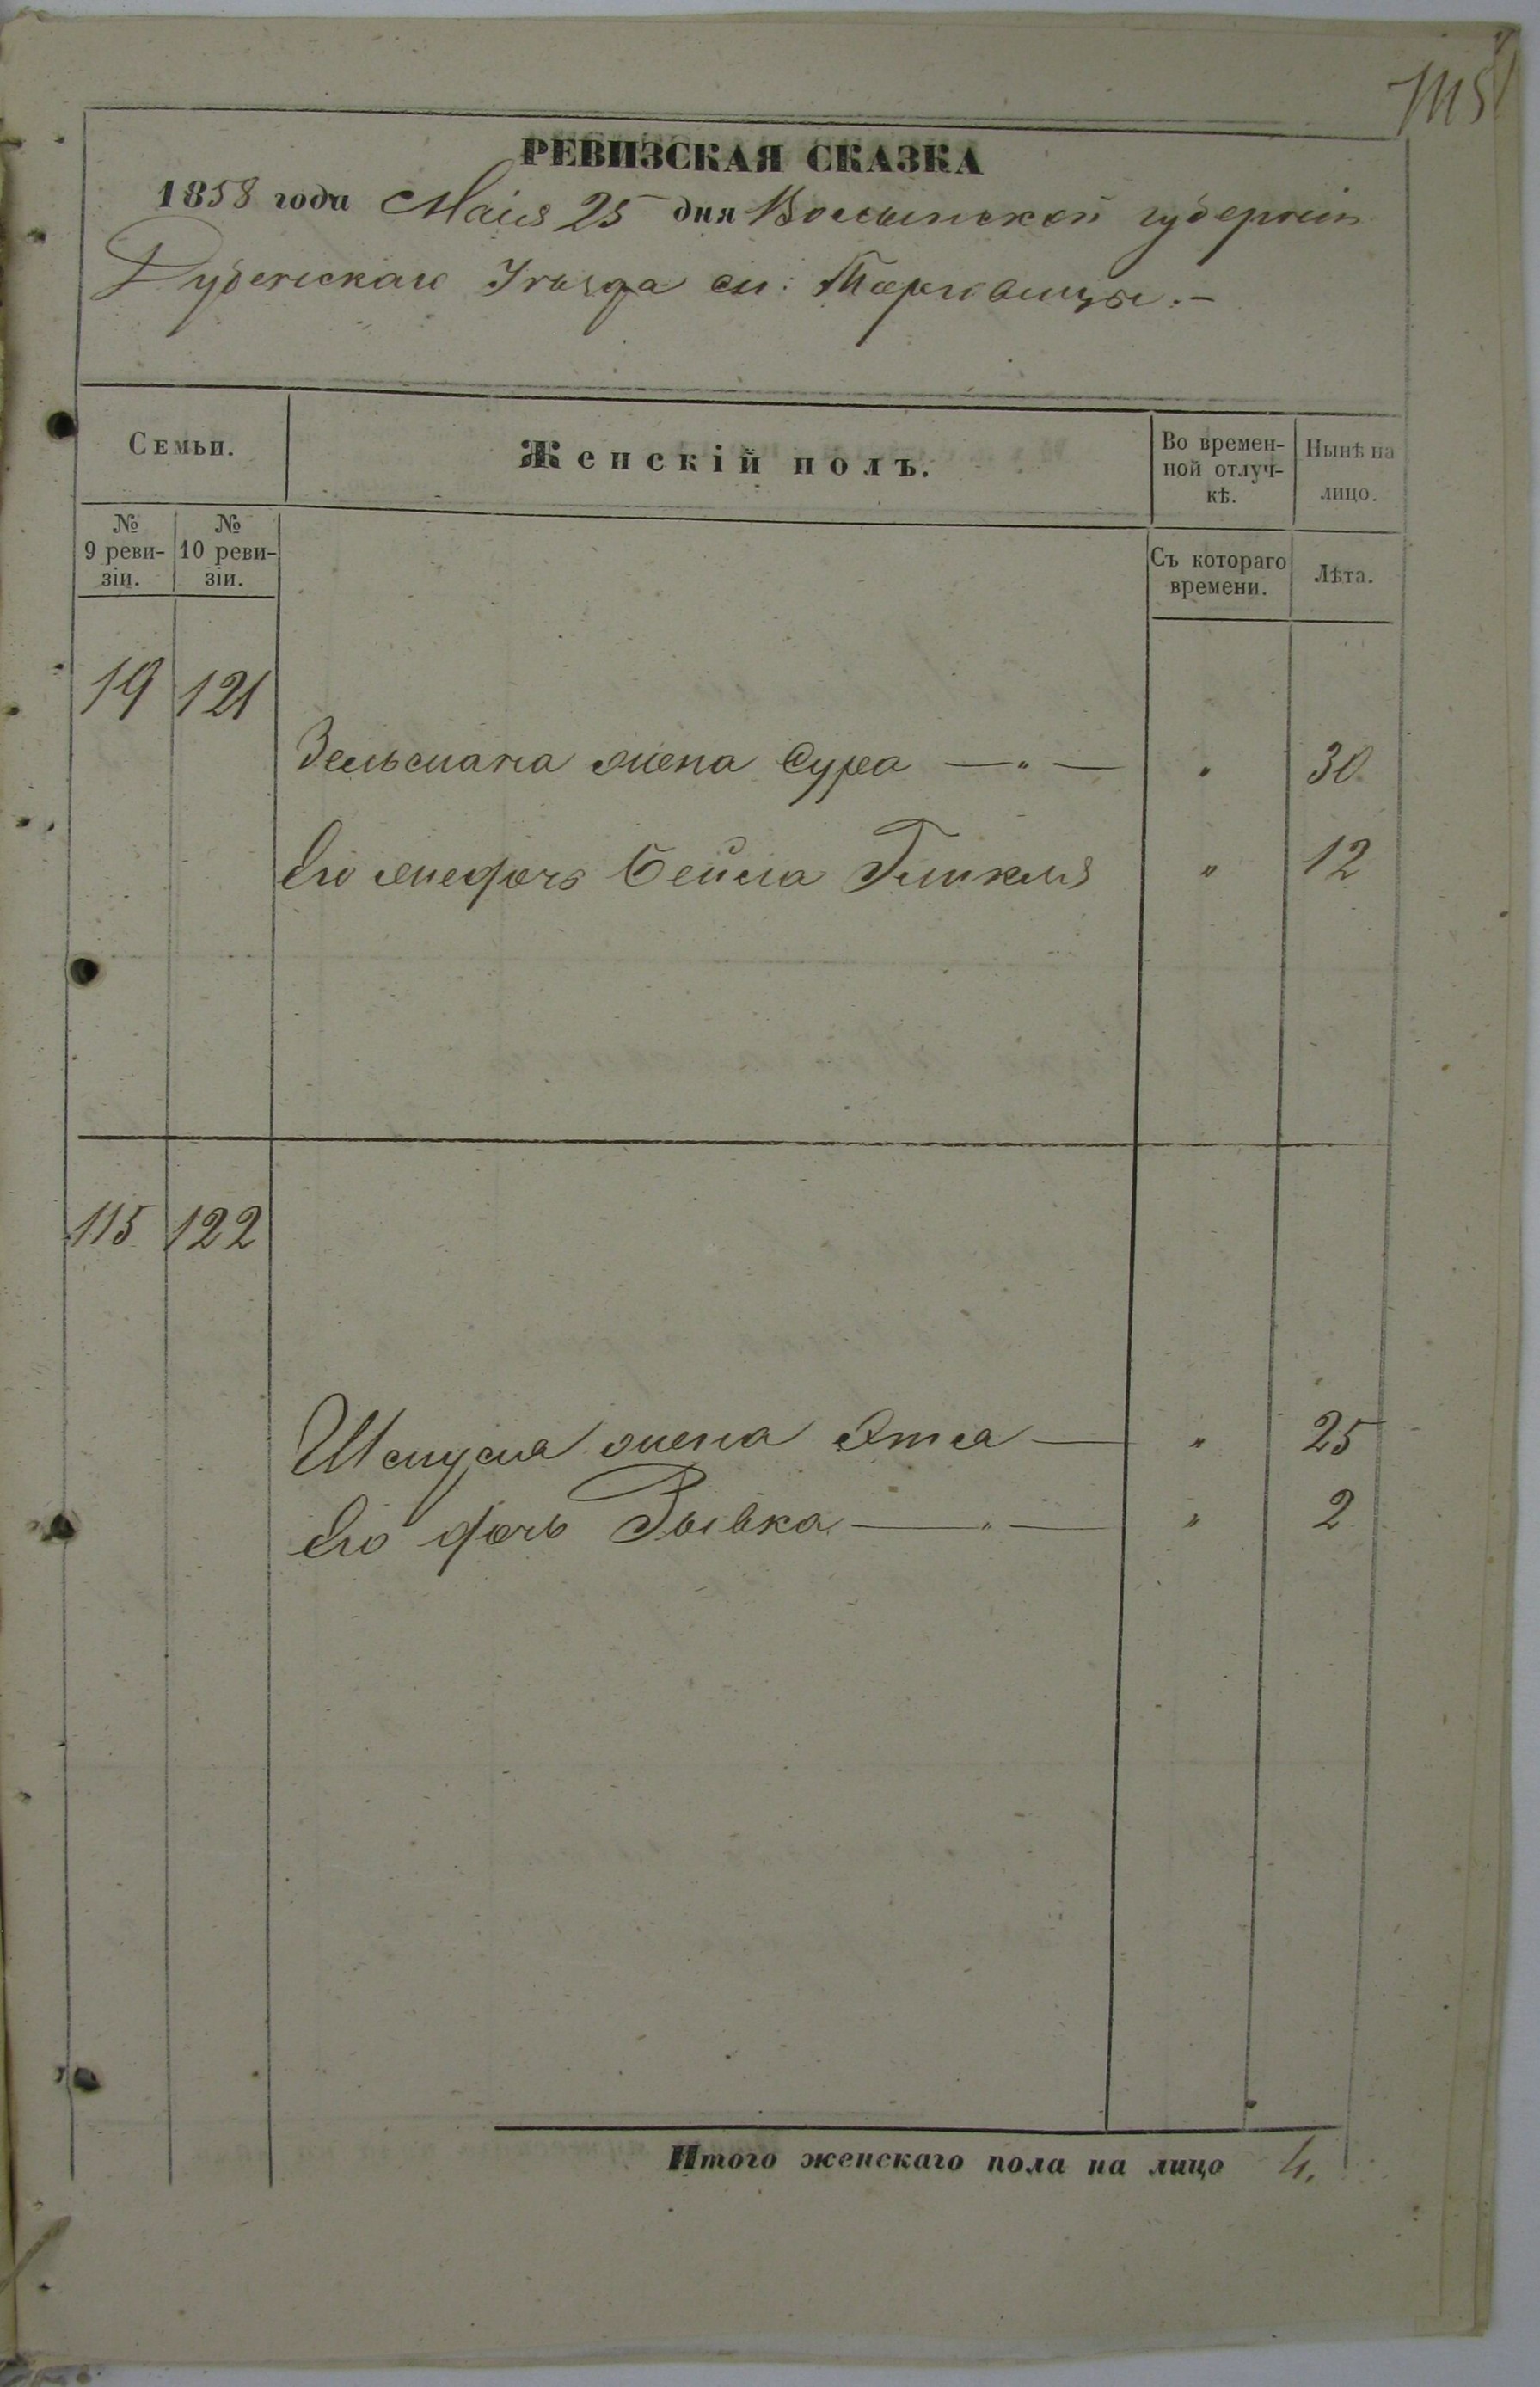 РЕВИЗСКАЯ СКАЗКА
1858 года Маія 25 дня Волынской губерніи
Дубенскаго Уѣзда м: Торговицы.-
Семьи.
Женскій полъ.
Во времен-
ной отлуч-
кѣ.
Нынѣ на
лицо.
№
9 реви-
зіи.
№
10 реви-
зіи.
Съ котораго
времени.
Лѣта.
19 121
Зельмана жена Сура —"— " 30
Его же дочь Бейла Гликля " 12
115 122
Шмуля жена Эта — " 25
Его дочь Рывка —"— " 2
Итого женскаго пола на лицо 4.